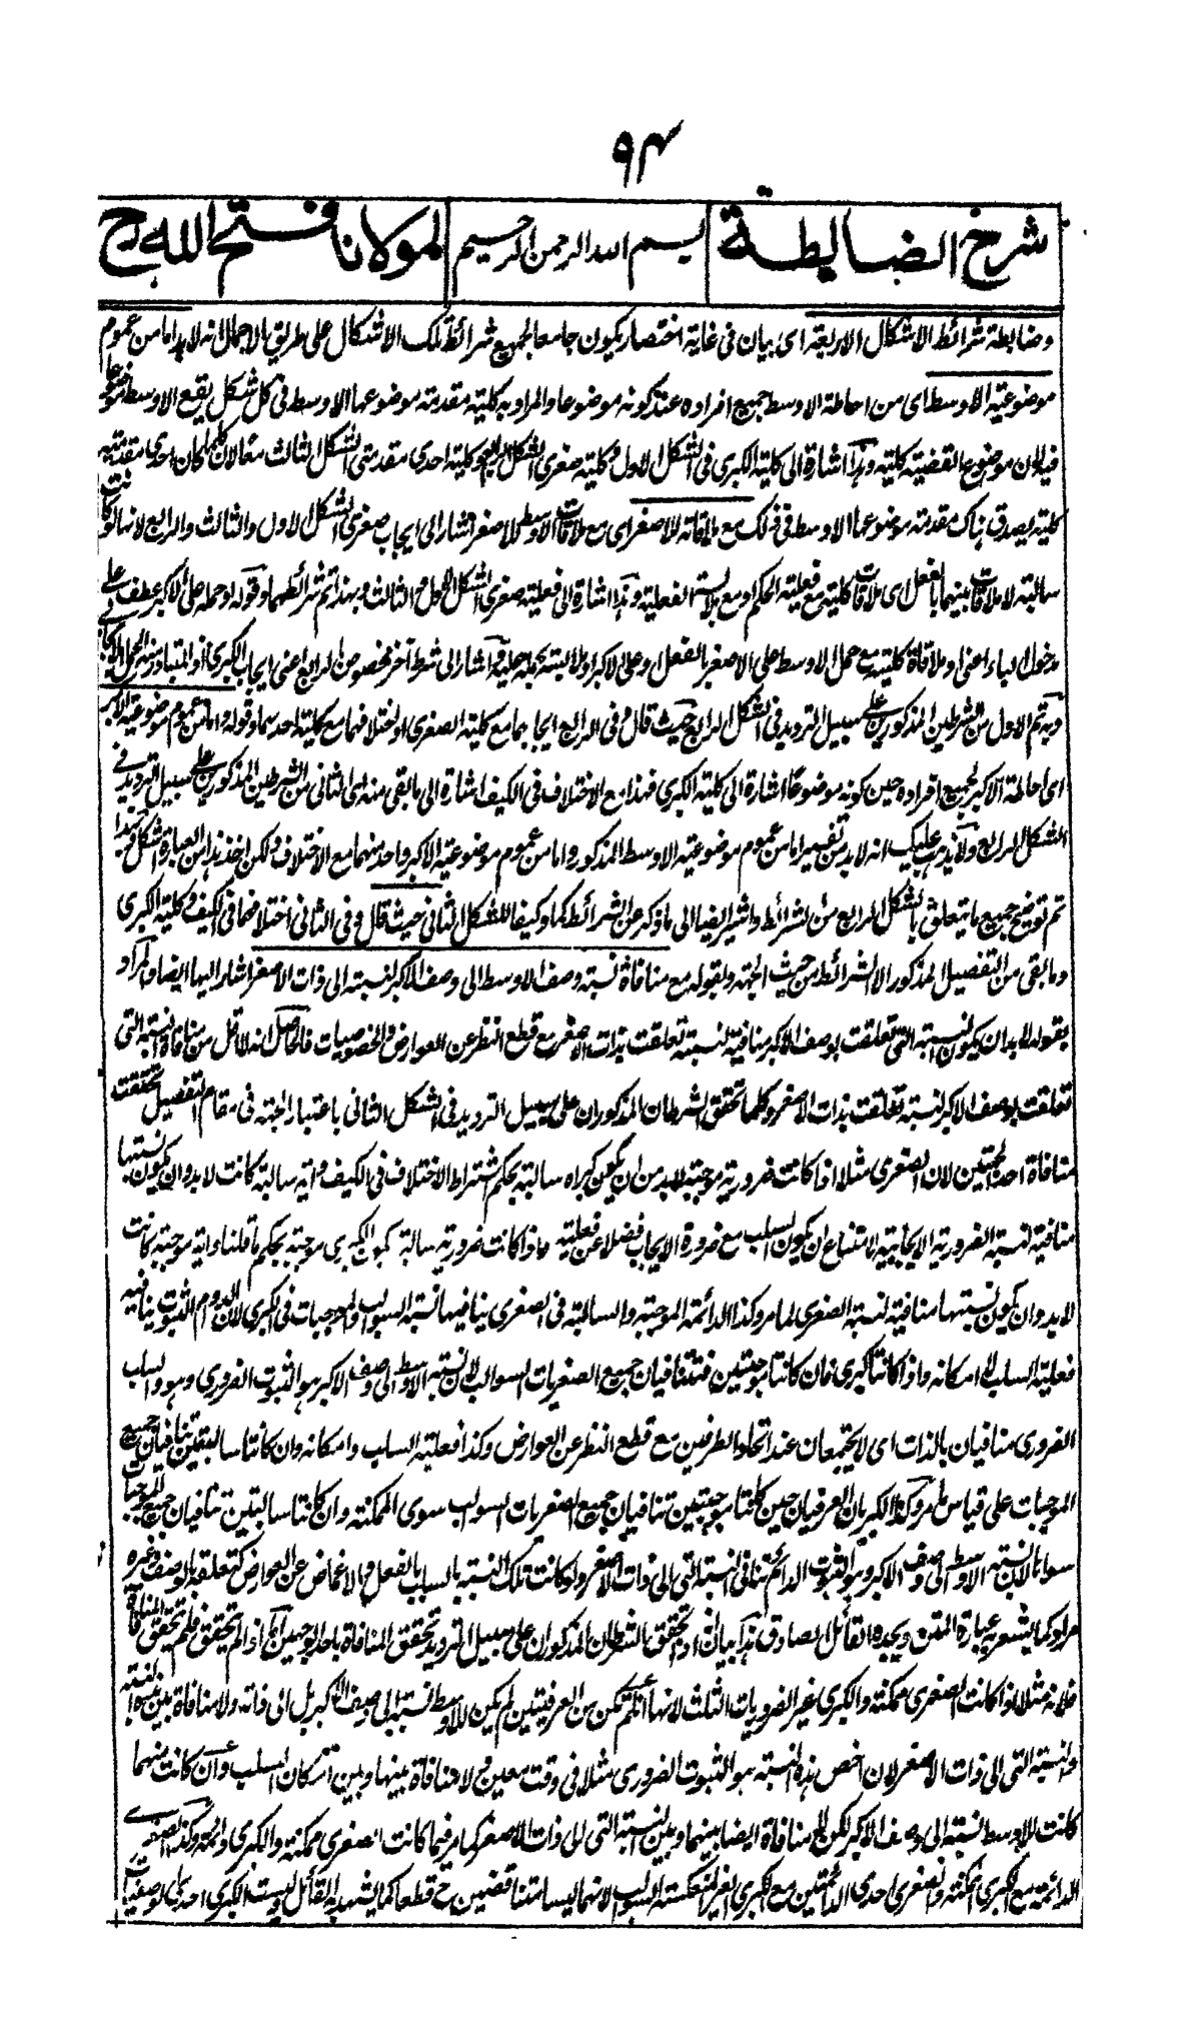 ٩٣
شرح الضابطة
بسم الله الرحمن الرحيم
لمولانا فتح الله رح
وضابطة شرائط الاشكال الاربعة اى بيان فى غاية اختصار يكون جامعا لجميع شرائط تلك الاشكال على طريق الاجمال انه لابد اما من عموم
موضوعية الاوسط اى من احاطة الاوسط جميع افراده عند كونه موضوعا والمراد به كلية مقدمة موضوعها الاوسط فى كل شكل يقع الاوسط موضوعا
فيه لان موضوع القضية كلية وهذا اشارة الى كلية الكبرى فى الشكل الاول وكلية صغرى الشكل الرابع وكلية احدى مقدمتى الشكل الثالث مثلا لان كلما كان احدى مقدمتيه
كلية يصدق هناك مقدمة موضوعها الاوسط فى ذلك مع ملاقاته للاصغر اى مع ملاقات الاوسط للاصغر اشار الى ايجاب صغرى الشكل الاول والثالث والرابع لانها لو كانت
سالبة لا ملاقات بينهما بالفعل اى ملاقات كلية مع فعلية الحكم او مع ملابسة الفعلية وهذا اشارة الى فعلية صغرى الشكل الاول مع الثالث وبهذا تم شرائطهما وقوله او حمله على الاكبر عطف على
مدخول الباء اعنى وملاقاة كلية مع حمل الاوسط على الاصغر بالفعل او على الاكبر
وبه تم الاول من الشرطين المذكورين على سبيل الترديد فى الشكل الرابع حيث قال وفى الرابع ايجابهما مع كلية الصغرى او اختلافهما مع كلية احدهما وقوله واما من عموم موضوعية الاكبر
اى احاطة الاكبر لجميع افراده حين كونه موضوعا اشارة الى كلية الكبرى فهذا مع الاختلاف فى الكيف اشارة الى ما بقى منه اى الثانى من الشرطين المذكورين على سبيل الترديد فى
الشكل الرابع ولا يذهب عليك انه لابد من تفسير اما من عموم موضوعية الاوسط المذكور واما من عموم موضوعية الاكبر واحد منهما مع الاختلاف ولكن اخذ هذا من العبارة مشكل وبهذا
تم توضيح جميع ما يتعلق بالشكل الرابع من الشرائط واشير ايضا الى ما ذكر من الشرائط كما وكيفا للشكل الثانى حيث قال وفى الثانى اختلافهما فى الكيف وكلية الكبرى
وما بقى من التفصيل المذكور الا الشرائط من حيث الجهة وبقوله مع منافاة نسبة وصف الاوسط الى وصف الاكبر لنسبته الى ذات الاصغر اشار اليها ايضا والمراد
بقوله لابد ان يكون النسبة التى تعلقت بوصف الاكبر منافية لنسبة تعلقت بذات الاصغر مع قطع النظر عن العوارض والخصوصيات فالحاصل انه لا اقل من منافاة النسبة التى
تعلقت بوصف الاكبر لنسبة تعلقت بذات الاصغر وكلما تحقق الشرطان المذكوران على سبيل الترديد فى الشكل الثانى باعتبار الجهة فى مقام التفصيل تحققت
منافاة احدى الجهتين لان الصغرى مثلا اذا كانت ضرورية موجبة لابد من ان يكون كبراه سالبة بحكم اشتراط الاختلاف فى الكيف واية سالبة كانت لابد وان يكون نسبتها
منافية لنسبة الضرورية الايجابية لامتناع ان يكون السلب مع ضرورة الايجاب فضلا عن فعليته واذا كانت ضرورية سالبة يكون الكبرى موجبة بحكم ما قلنا واية موجبة كانت
لابد وان يكون نسبتها منافية لنسبة الصغرى لما مر وكذا الدائمة الموجبة والسالبة فى الصغرى ينافيها نسبة السوالب والموجبات فى الكبرى لان الدوام الثبوت ينافيه
فعلية السلب لا امكانه واذا كانتا كبرى فان كانتا موجبتين فتنافيان جميع الصغريات السوالب لان نسبة الاوسط الى وصف الاكبر هو الثبوت الضرورى وهو والسلب
الضرورى منافيان بالذات اى لا يجتمعان عند اتحاد الطرفين مع قطع النظر عن العوارض وكذا فعلية السلب وامكانه وان كانتا سالبتين تنافيان جميع
الموجبات على قياس ما مر وكذا الكبريان العرفيان حين كانتا موجبتين تنافيان جميع الصغريات السوالب سوى الممكنة وان كانتا سالبتين تنافيان جميع الموجبات
سواها لان نسبة الاوسط الى وصف الاكبر وهو الثبوت الدائم تنافى النسبة التى الى ذات الاصغر ولو كانت تلك النسبة بالسلب بالفعل والاغماض عن العوارض كتعلقه بالوصف وغيره
مراد كما يشعر به عبارة المتن ويجده القائل الصادق هذا بيان اذا تحقق الشرطان المذكوران على سبيل الترديد تحقق المنافاة باحد الوجهين اما اذا لم يتحقق فلم تحقق المنافاة
فلانه مثلا اذا كانت الصغرى ممكنة والكبرى غير الضروريات الثلث لانها ان لم تكن من العرفيتين لم يكن للاوسط نسبة الى وصف الاكبر بل الى ذاته ولا منافاة بين هذه النسبة
والنسبة التى الى ذات الاصغر لان اخص هذه النسبة هو الثبوت الضرورى مثلا فى وقت معين ولا منافاة بينها وبين امكان السلب وان كانت منهما
كانت للاوسط نسبة الى وصف الاكبر لكن لا منافاة ايضا بينهما وبين النسبة التى الى ذات الاصغر كما مر فيما كانت الصغرى ممكنة والكبرى دائمة وكذا الصغرى
الدائمة مع الكبرى الممكنة والصغرى احدى الدائمتين مع الكبرى الغير المنعكسة السوالب لانهما ليسا متناقضين ح قطعا كما يشهد به القائل وليست الكبرى احدى الوصفيات